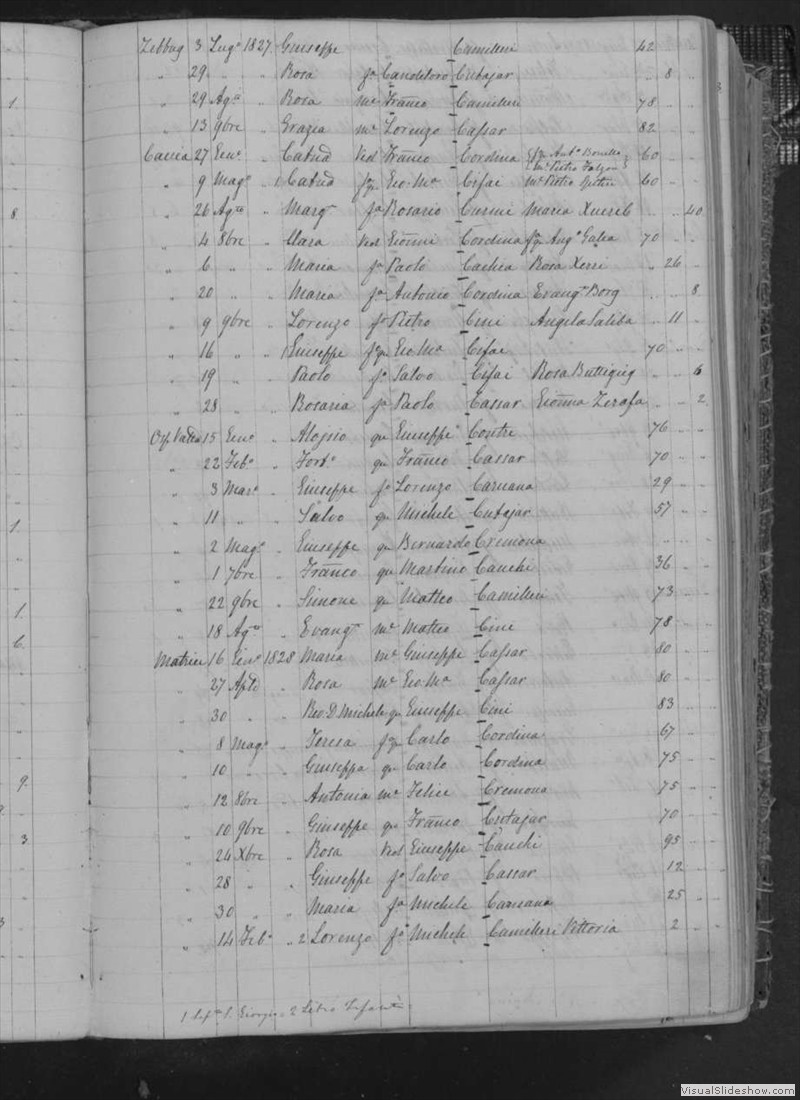 Zebbug 3 Lug° 1827 Giuseppe Camilleri 42 " "
" 29 " " Rosa fa Canditoro Cutajar " " 8 "
1. " 29 Ag° " Rosa me Franco Camilleri 78 " "
" 13 9bre " Grazia me Lorenzo Cassar 82 " "
Caccia 27 Gen° " Ved Franco Cordina Pietro Falzon 60
" 9 Mag° " 1 Eio-Ma Cifai me Pietro 60 " "
8. " 26 Ag° " Marga fa Rosario Curmi Maria Xuereb " " 40
" 4 8bre " Clara Ved Cordina Ang° Galea 70 " "
" 6 " " Maria fa Paolo Cachia Rosa Xerri " 26 "
" 20 " " Maria fa Antonio Cordina Evang° Borg " " 8
" 9 9bre " Lorenzo f° Pietro Cini Angela Saliba " 11 "
" 16 " " 1 Giuseppe Eio-Ma Cifai 70 " "
" 19 " " Paolo f° Salvo Cifai Rosa Buttigieg " " 6
" 28 " " Rosaria fa Paolo Cassar Zerafa " " 2
15 Gen° " Aloisio qu Giuseppe Contri 76 " "
" 22 Feb° " Fort° qu Franco Cassar 70 " "
" 3 Mar° " Giuseppe f° Lorenzo Caruana 29 " "
1. " 11 " " Salvo qu Michele Cutajar 57 " "
" 2 Mag° " Giuseppe qu Bernardo Cremona " " "
" 1 7bre " Franco qu Martino Cauchi 36 " "
1. " 22 9bre " Simone qu Matteo Camilleri 73 " "
6. " 18 Ag° " Evangta me Matteo Cini 78 " "
Matrice 16 Gen° 1828 Maria me Giuseppe Cassar 80 " "
" 27 Aple " Rosa me Eio-Ma Cassar 80 " "
" 30 " Rev. D. Michele qu Giuseppe Cini 83 " "
" 8 Mag° " Teresa Carlo Cordina 67 " "
9. " 10 " " Giuseppa qu Carlo Cordina 75 " "
" 12 8bre " Antonia me Felice Cremona 75 " "
3 " 10 9bre " Giuseppe qu Franco Cutajar 70 " "
" 24 Xbre " Rosa Ved Giuseppe Cauchi 95 " "
" 28 " " Giuseppe f° Salvo Cassar 12 " "
" 30 " " Maria fa Michele Caruana 25 " "
" 14 Feb° " 2 Lorenzo f° Michele Camilleri Vittoria 2 " "
1 S. Giorgio 2 Libro Infanti
VisualSlideshow.com